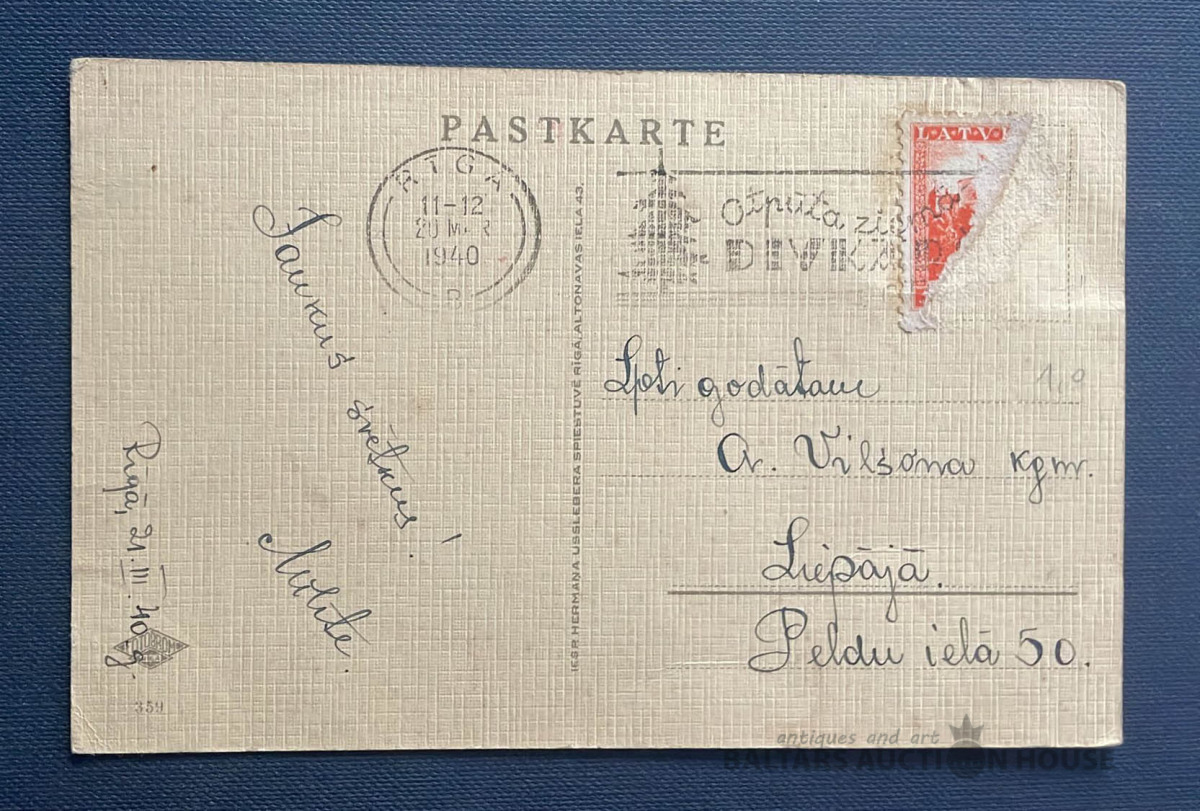 PASTKARTE
RIGA
11-12
1940
B
LATV
Otpūta
DIVKĀ
Jaukus
svētkus!
Milite.
Rīgā, 21.III.40.g.
359
IESP. HERMAŅA USSLEBERA SPIESTUVĒ RĪGĀ, ALTONAVAS IELĀ 43.
Ļoti godātam
A. Vilsona kgm.
Liepājā.
Peldu ielā 50.
1,0
antiques and art
BALTARS AUCTION HOUSE